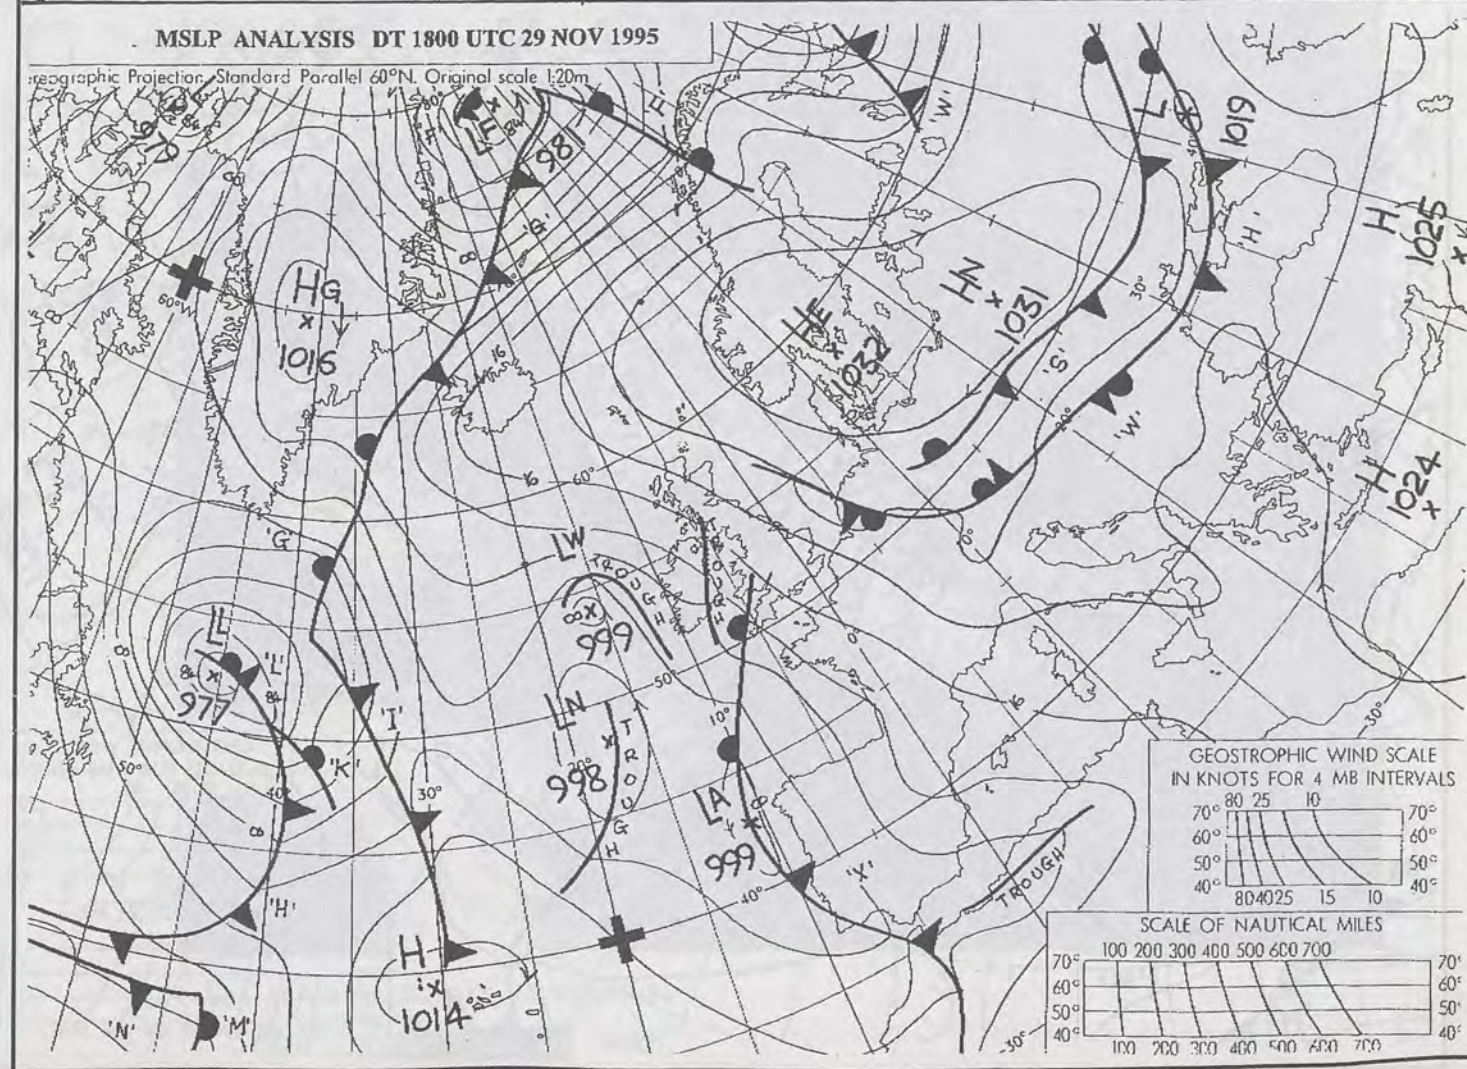 MSLP ANALYSIS DT 1800 UTC 29 NOV 1995
Projection, Standard Parallel 60°N. Original scale 1:20m
979
84
981
'F'
'W'
L
1019
'H'
H
1025
'G'
8
60°W
HG
1016
16
HE
1032
HN
1031
30°
'S'
20°
'W'
H
1024
16
60°
0°
'G'
LW
TROUGH
8
999
TROUGH
LL
84
977
'L'
'I'
'K'
8
50°
40°
30°
LN
998
TROUGH
50°
10°
0°
LA
8
999
'X'
40°
16
TROUGH
30°
8
'H'
H
1014
'N'
'M'
-30°
GEOSTROPHIC WIND SCALE
IN KNOTS FOR 4 MB INTERVALS
80 25 10
70° 70°
60° 60°
50° 50°
40° 40°
80 40 25 15 10
SCALE OF NAUTICAL MILES
100 200 300 400 500 600 700
70° 70°
60° 60°
50° 50°
40° 40°
100 200 300 400 500 600 700